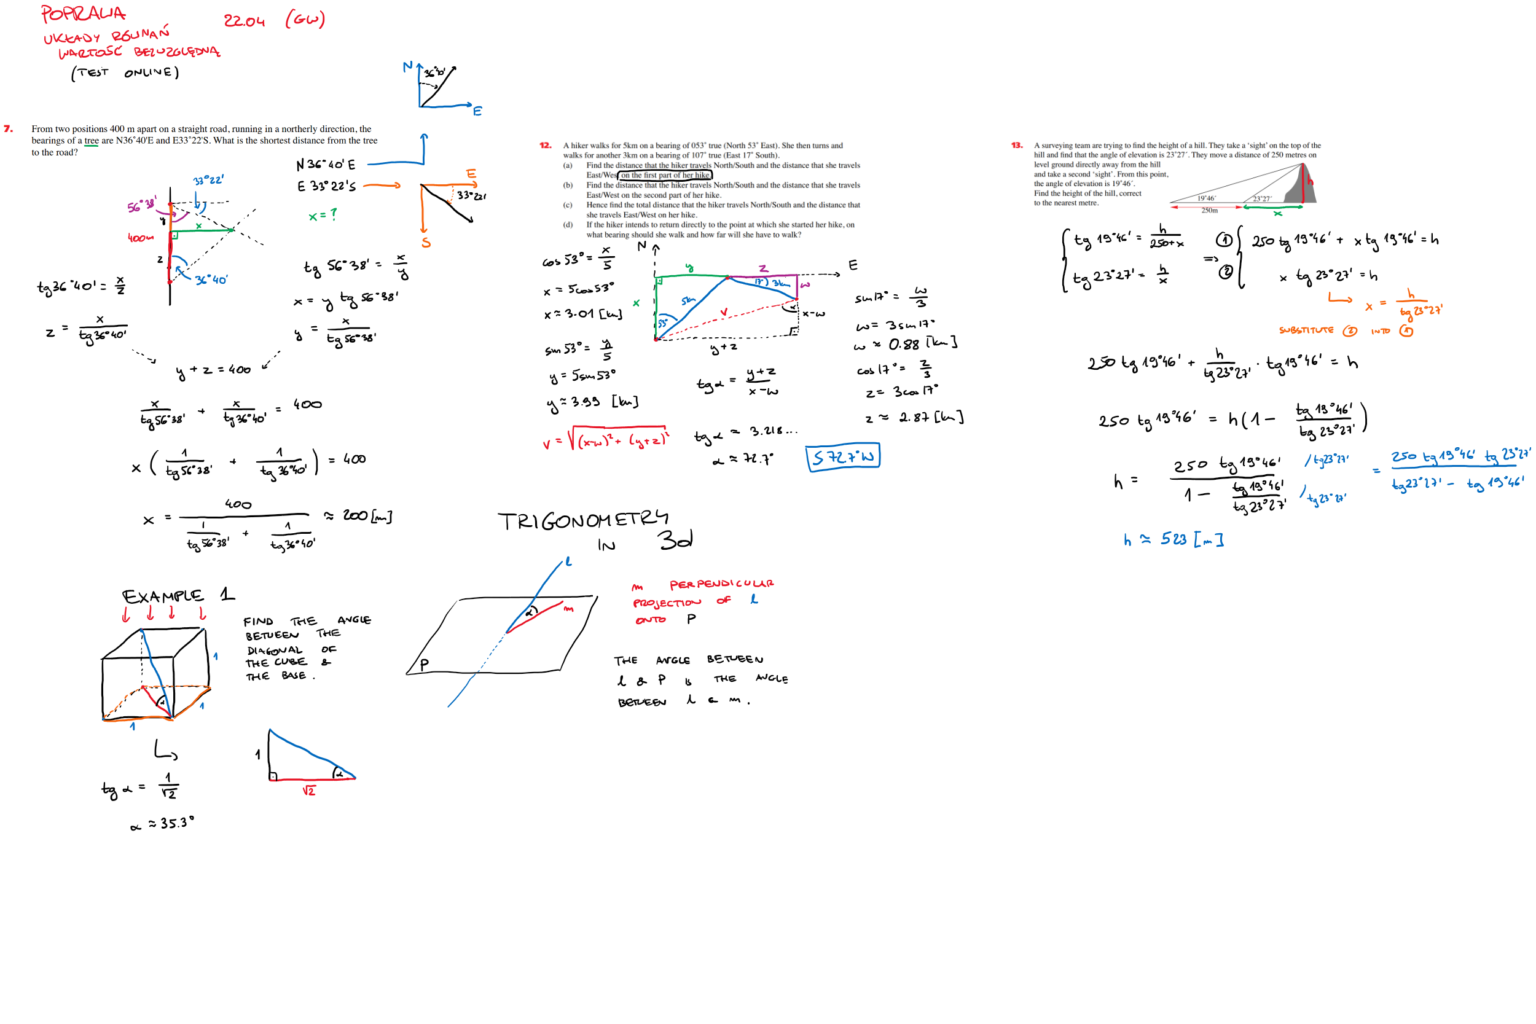 POPRAWA 22.04 (GW)
UKŁADY RÓWNAŃ
WARTOŚĆ BEZWZGLĘDNA
(TEST ONLINE)
N
36°40'
E
7. From two positions 400 m apart on a straight road, running in a northerly direction, the
bearings of a tree are N36°40'E and E33°22'S. What is the shortest distance from the tree
to the road?
N 36°40' E
E 33°22'S
x = ?
E
33°22'
S
33°22'
56°38'
y
x
400m
z
36°40'
tg 36°40' = x/z
z = x/tg 36°40'
tg 56°38' = x/y
x = y tg 56°38'
y = x/tg 56°38'
y + z = 400
x/tg 56°38' + x/tg 36°40' = 400
x (1/tg 56°38' + 1/tg 36°40') = 400
x = 400/(1/tg 56°38' + 1/tg 36°40') ≈ 200 [m]
EXAMPLE 1
FIND THE ANGLE
BETWEEN THE
DIAGONAL OF
THE CUBE &
THE BASE.
1
1
1
α
tg α = 1/√2
α ≈ 35.3°
1
α
√2
12. A hiker walks for 5km on a bearing of 053° true (North 53° East). She then turns and
walks for another 3km on a bearing of 107° true (East 17° South).
(a) Find the distance that the hiker travels North/South and the distance that she travels
East/West on the first part of her hike.
(b) Find the distance that the hiker travels North/South and the distance that she travels
East/West on the second part of her hike.
(c) Hence find the total distance that the hiker travels North/South and the distance that
she travels East/West on her hike.
(d) If the hiker intends to return directly to the point at which she started her hike, on
what bearing should she walk and how far will she have to walk?
cos 53° = x/5
x = 5cos 53°
x ≈ 3.01 [km]
sin 53° = y/5
y = 5sin 53°
y ≈ 3.99 [km]
v = √((x-w)² + (y+z)²)
N
E
y
z
x
5km
17°
3km
w
53°
v
α
x-w
y+z
tg α = y+z/x-w
tg α ≈ 3.218...
α ≈ 72.7°
S 72.7° W
sin 17° = w/3
w = 3 sin 17°
w ≈ 0.88 [km]
cos 17° = z/3
z = 3cos 17°
z ≈ 2.87 [km]
TRIGONOMETRY
IN 3d
l
α
m
P
m PERPENDICULAR
PROJECTION OF l
ONTO P
THE ANGLE BETWEEN
l & P IS THE ANGLE
BETWEEN l & m.
13. A surveying team are trying to find the height of a hill. They take a 'sight' on the top of the
hill and find that the angle of elevation is 23°27'. They move a distance of 250 metres on
level ground directly away from the hill
and take a second 'sight'. From this point,
the angle of elevation is 19°46'.
Find the height of the hill, correct
to the nearest metre.
19°46'
23°27'
250m
x
h
tg 19°46' = h/250+x
tg 23°27' = h/x
=>
① 250 tg 19°46' + x tg 19°46' = h
② x tg 23°27' = h
x = h/tg 23°27'
SUBSTITUTE ② INTO ①
250 tg 19°46' + h/tg 23°27' · tg 19°46' = h
250 tg 19°46' = h(1 - tg 19°46'/tg 23°27')
h = 250 tg 19°46'/(1 - tg 19°46'/tg 23°27') /tg 23°27' /tg 23°27' = 250 tg 19°46' tg 23°27'/tg 23°27' - tg 19°46'
h ≈ 523 [m]